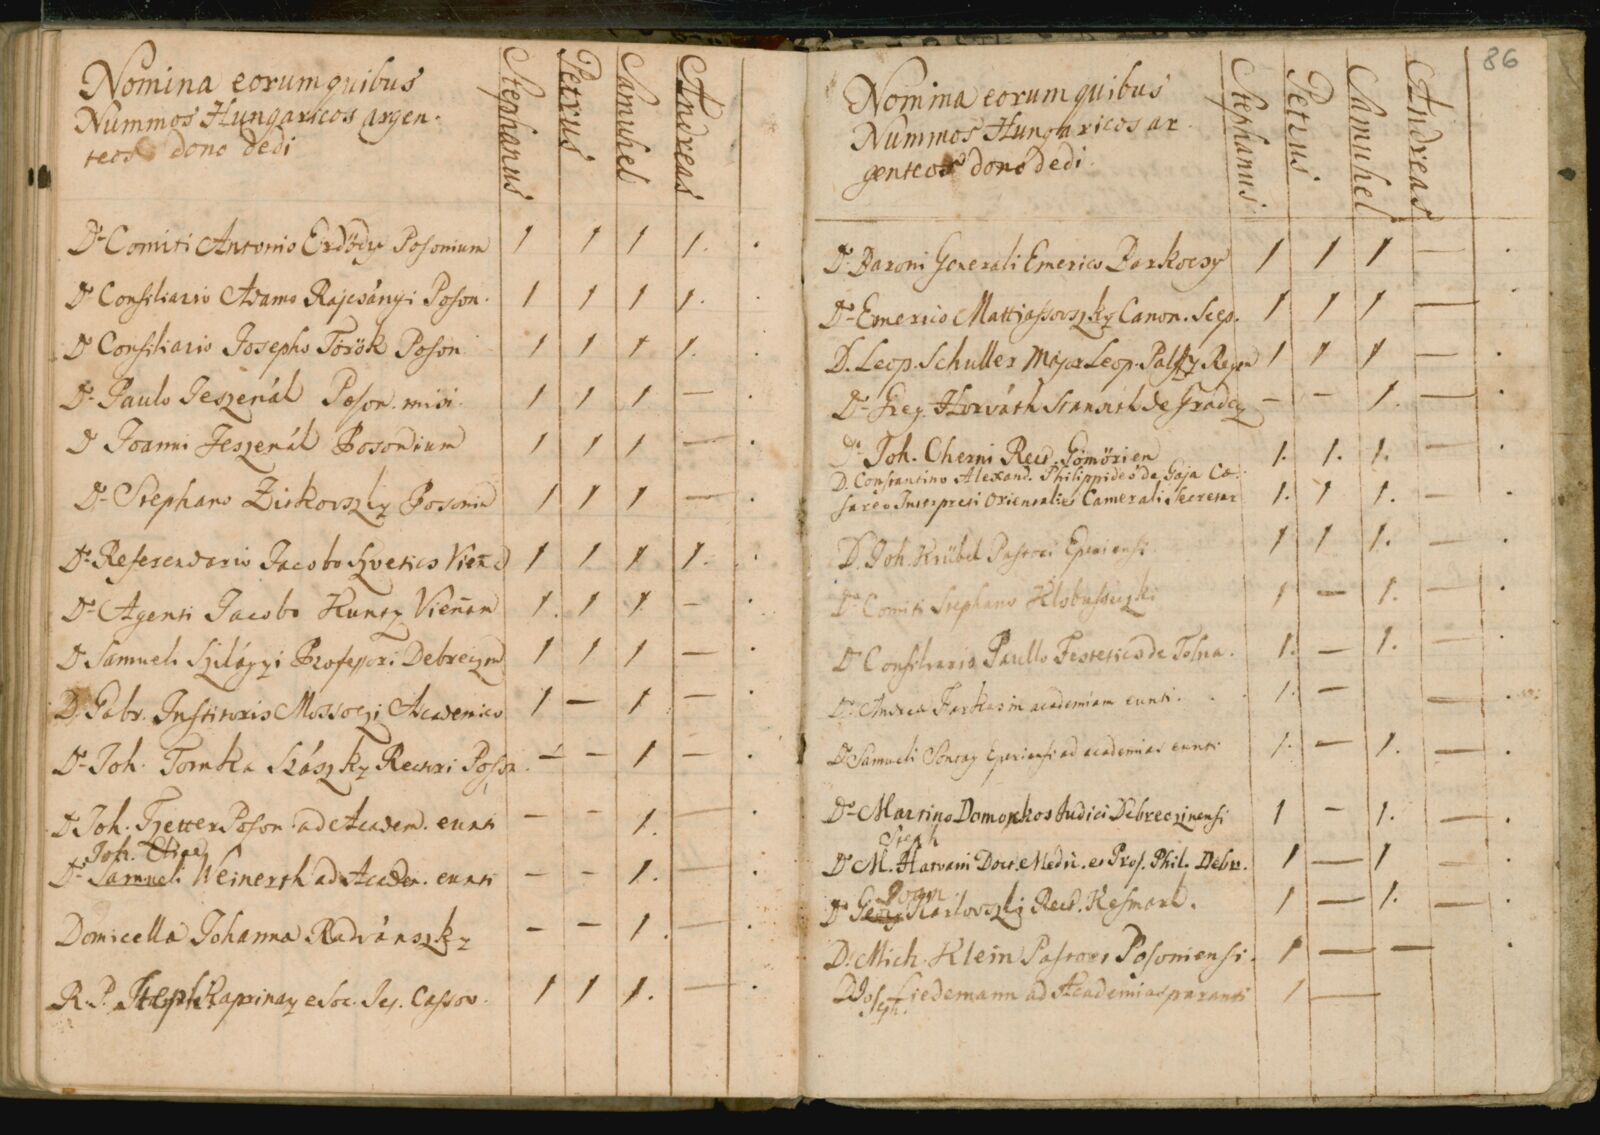 Nomina eorum quibus
Nummos Hungaricos argen-
teos dono dedi
Stephanus
Petrus
Samuhel
Andreas
Dº Comiti Antonio Erdődy Posonium 1 1 1 1. .
Dº Consiliario Adamo Rajcsányi Poson. 1 1 1 1. .
Dº Consiliario Josepho Török Poson 1 1 1 1. .
Dº Paulo Jeszenák Poson. misi. 1 1 1 — .
Dº Joanni Jeszenák Posonium 1 1 1 — .
Dº Stephano Poson 1 1 1 — .
Dº Referendario Jacobo Szvetics Vien 1 1 1 1. .
Dº Agenti Jacobo Kuntz Vieñam 1. 1 1 — .
Dº Samueli Szilágyi Professori Debreczen 1 1 1 — .
D. Gabr. Institoris Mossoczi Academico 1 — 1 — .
Dº Joh. Tomka Szászky Rectori Poson. — — 1 — .
Dº Joh. Poson. ad Academ. eunti — — 1. — .
Joh.
Dº Samueli Weinerth ad Acadm. eunti — — 1. — .
Domicella Johanna Radvánszky — — 1. — .
R. P. Steph. Kaprinay e Soc. Jes. Cassov. 1 1 1. — .
86
Nomina eorum quibus
Nummos Hungaricos ar
genteos dono dedi.
Stephanus
Petrus
Samuhel
Andreas
Dº Baroni Generali Emerico Barkoczy 1 1 1 — .
Dº Emerico Mattyasovszky Canon. Scep. 1 1 1 — .
D. Leop. Schuller Major Leop. Palffy Regim 1 1 1 — .
Dº Greg. Horváth Stansith de Gradecz — — 1. — .
Dº Joh. Cherni Rect. Gömörien 1. 1. 1. — .
D. Constantino Alexand. Philippides de Gaja Cæ-
sareo Interpreti Orientali et Camerali Secretar 1. 1 1. — .
D. Joh. Krübel Pastori Eperiensi 1 1 1. — .
Dº Comiti Stephano Klobusiczki 1 — 1. — .
Dº Consiliario Paullo Festetics de Tolna. 1. — 1. — .
Dº Andreæ Farkas in academiam eunti. 1. — — .
Dº Samueli Sontag Eperiensi ad academias eunti 1. — 1. — .
Dº Martino Domokos Judici Debreczinensi 1 — 1. — .
Steph
Dº M. Hatvani Doct. Medic. et Prof. Phil. Debr. 1 — 1 — .
Dº Karlovszki Rect. Kesmark. 1 — 1. — .
D. Mich. Klein Pastori Posoniensi. 1 — — .
D. Jos Liedemann ad Academias paranti 1 —
eph.